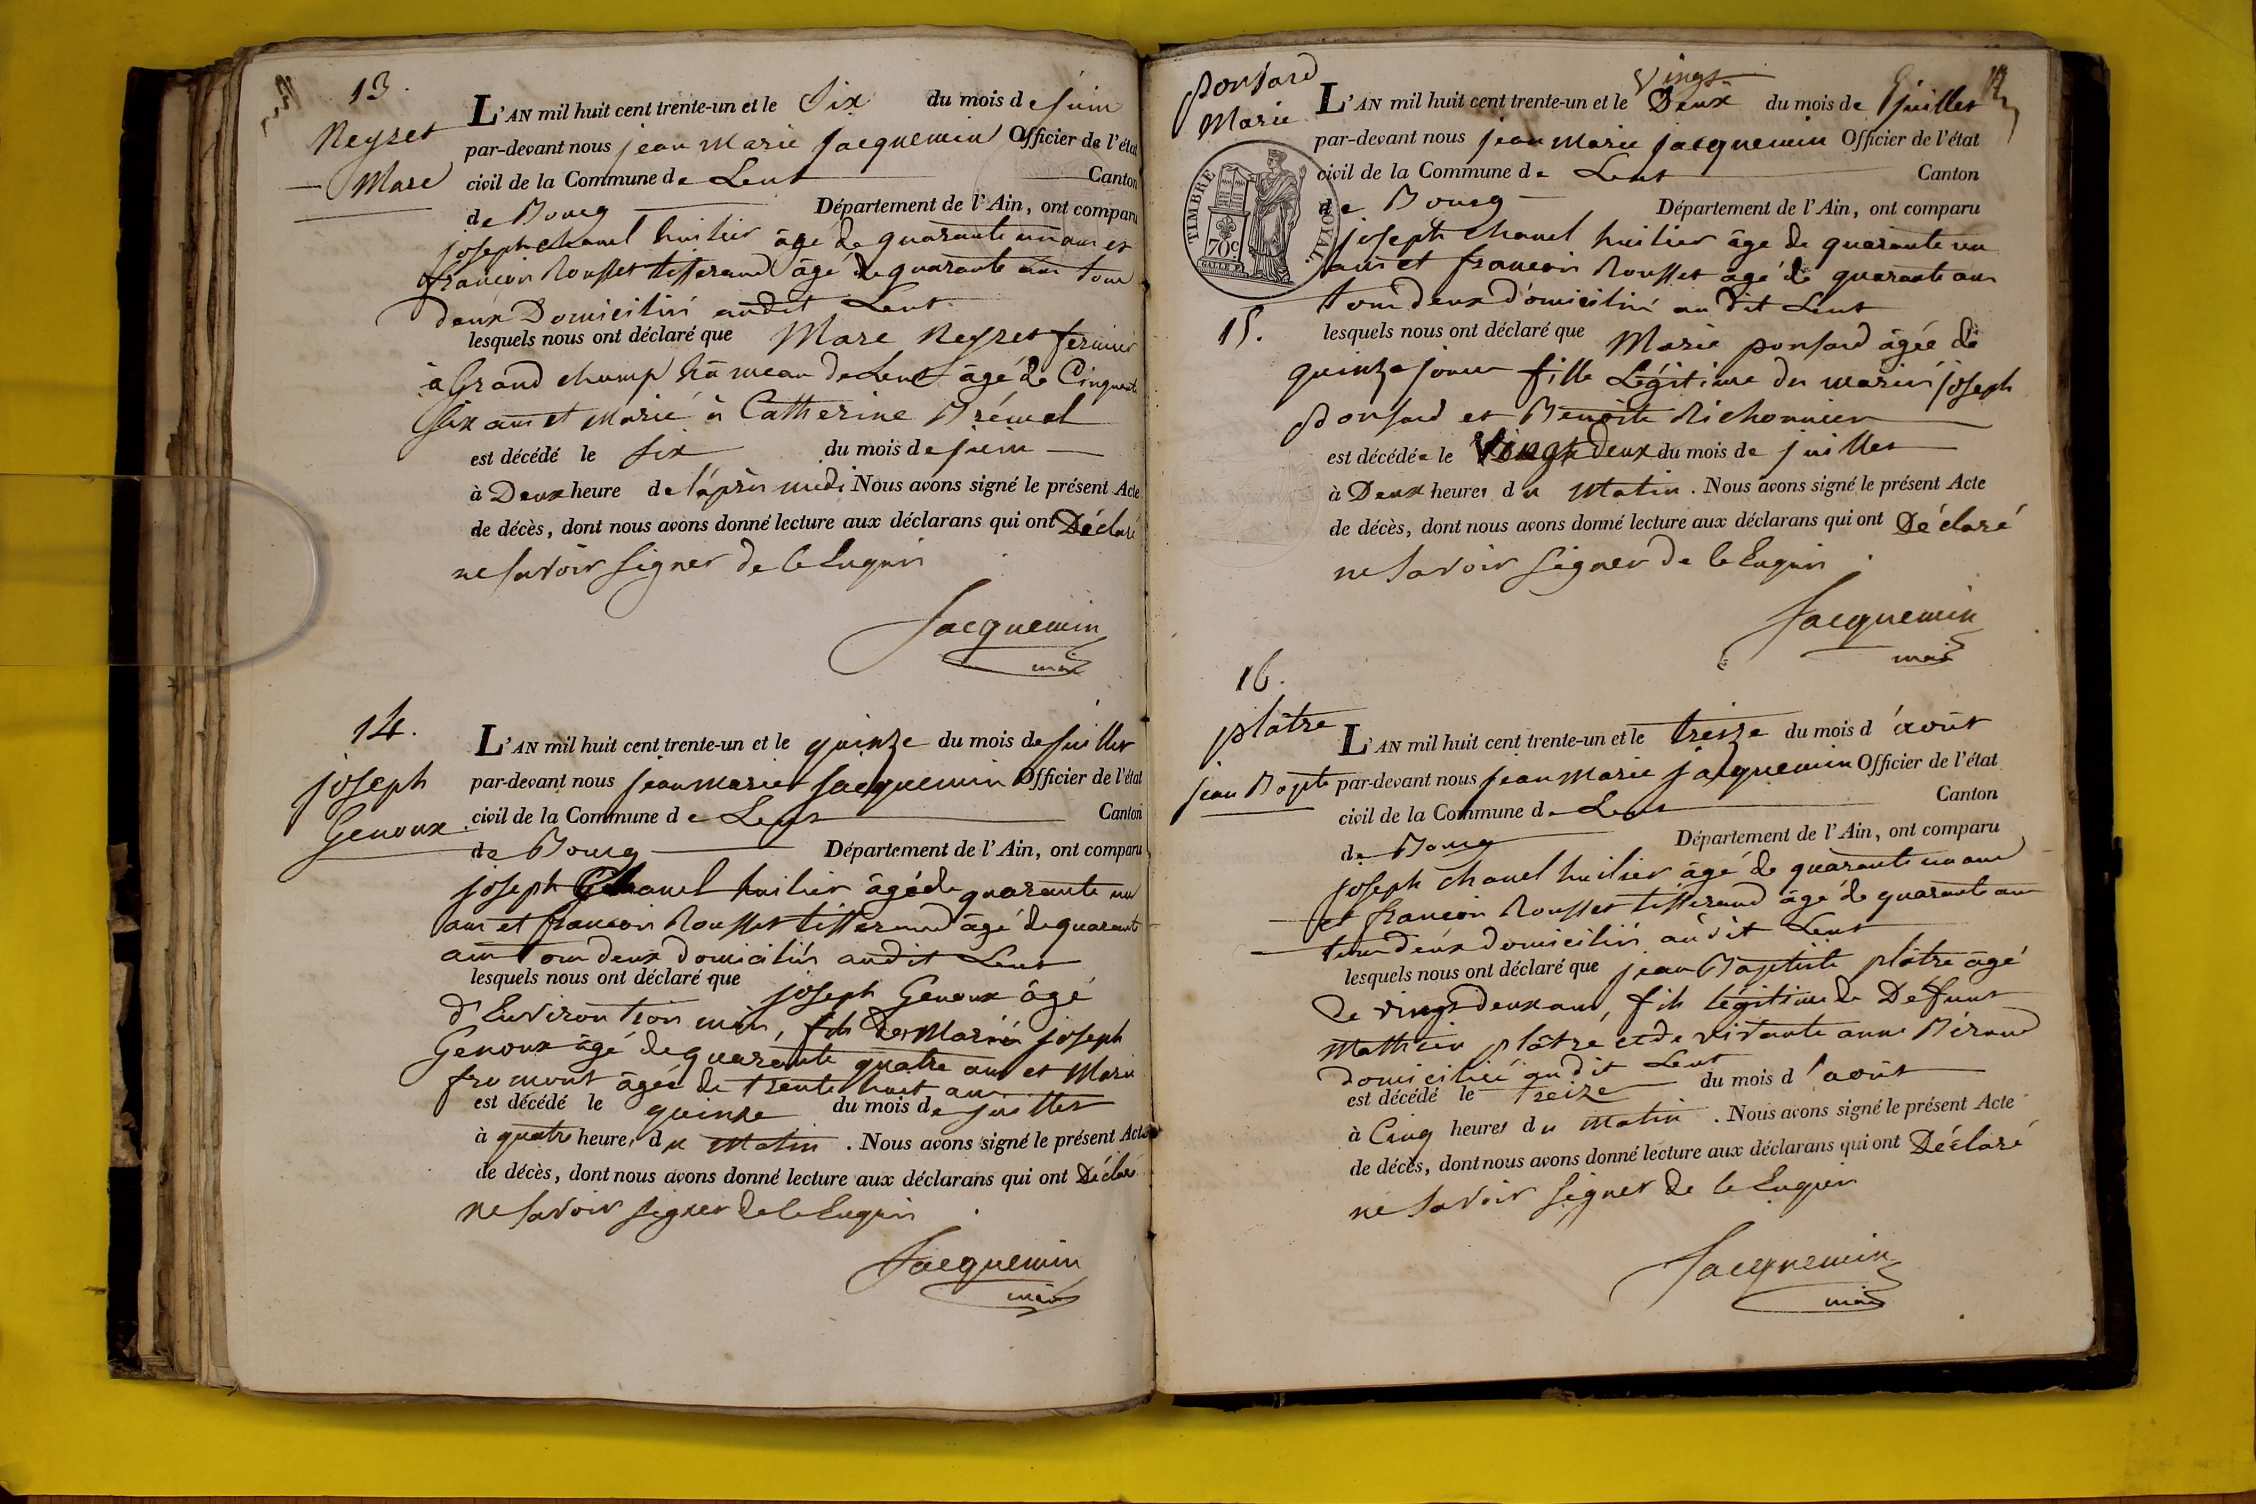 13.
Reyret
Marc
L'AN mil huit cent trente-un et le Six du mois de juin
par-devant nous jean Marie jacquemin Officier de l'état
civil de la Commune de Lent Canton
de Bourg Département de l'Ain, ont comparu
joseph chanel huilier âgé de quarante un ans et
françois Rousset tisserand âgé de quarante ans tous
deux Domiciliés audit Lent
lesquels nous ont déclaré que Marc Reyret fermier
à Grand champ hameau de Lent âgé de Cinquante
Six ans et Marié à Catherine
est décédé le six du mois de juin
à Deux heure de l'après midi Nous avons signé le présent Acte
de décès, dont nous avons donné lecture aux déclarans qui ont Déclaré
ne savoir signer de ce Enquis
Jacquemin
maire
14.
joseph
Genoux
L'AN mil huit cent trente-un et le quinze du mois de juillet
par-devant nous jean marie jacquemin Officier de l'état
civil de la Commune de Lent Canton
de Bourg Département de l'Ain, ont comparu
joseph Chanel huilier âgé de quarante un
ans et françois Rousset tisserand âgé de quarante
ans tous deux domiciliés audit Lent
lesquels nous ont déclaré que joseph Genoux âgé
d'Environ trois mois, fils des Mariés joseph
Genoux âgé de quarante quatre ans et Marie
fromont âgée de trente huit ans
est décédé le quinze du mois de juillet
à quatre heures du Matin. Nous avons signé le présent Acte
de décès, dont nous avons donné lecture aux déclarans qui ont Déclaré
ne savoir signer de ce Enquis
Jacquemin
maire
Ponsard
Marie
TIMBRE ROYAL
70c
15.
Vingt
L'AN mil huit cent trente-un et le Deux du mois de juillet
par-devant nous jean Marie jacquemin Officier de l'état
civil de la Commune de Lent Canton
de Bourg Département de l'Ain, ont comparu
joseph chanel huilier âgé de quarante un
ans et françois Rousset âgé de quarante ans
tous deux domiciliés audit Lent
lesquels nous ont déclaré que Marie ponsard âgée de
quinze jours fille Légitime des mariés joseph
Ponsard et Benoite Richonnier
est décédée le Vingt deux du mois de juillet
à Deux heures du Matin. Nous avons signé le présent Acte
de décès, dont nous avons donné lecture aux déclarans qui ont Déclaré
ne savoir signer de ce Enquis
Jacquemin
maire
16.
plâtre
jean Bapte
L'AN mil huit cent trente-un et le treize du mois d'août
par-devant nous jean Marie jacquemin Officier de l'état
civil de la Commune de Lent Canton
de Bourg Département de l'Ain, ont comparu
joseph chanel huilier âgé de quarante un ans
et françois Rousset tisserand âgé de quarante ans
tous deux domiciliés audit Lent
lesquels nous ont déclaré que jean Baptiste plâtre âgé
de vingt deux ans, fils légitime de Défunt
Mathieu plâtre et de vivante anne Béraud
domiciliée audit Lent
est décédé le treize du mois d'août
à Cinq heures du matin. Nous avons signé le présent Acte
de décès, dont nous avons donné lecture aux déclarans qui ont Déclaré
ne savoir signer de ce Enquis
Jacquemin
maire